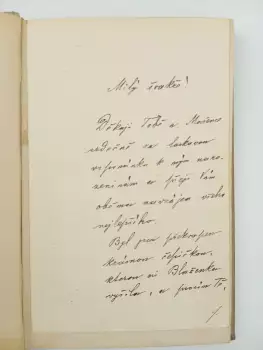 Milý švakře!
Děkuji Tobě a Mařence
srdečně za laskavou
vzpomínku k mým naro-
zeninám a přeji Vám
oběma navzájem všeho
nejlepšího.
Byl jsem překvapen
krásnou
kterou mi Blaženka
vyšila, a prosím Tě,